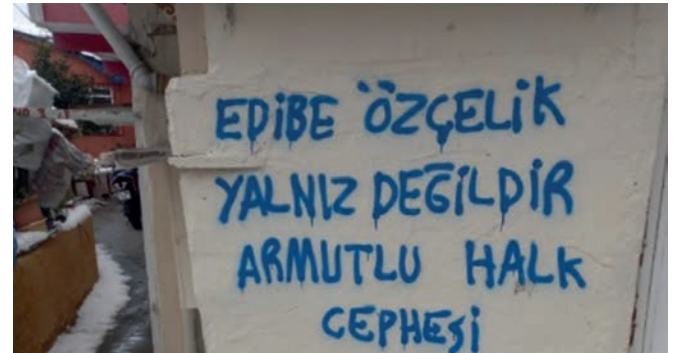 EDİBE ÖZÇELİK
YALNIZ DEĞİLDİR
ARMUTLU HALK
CEPHEŞİ